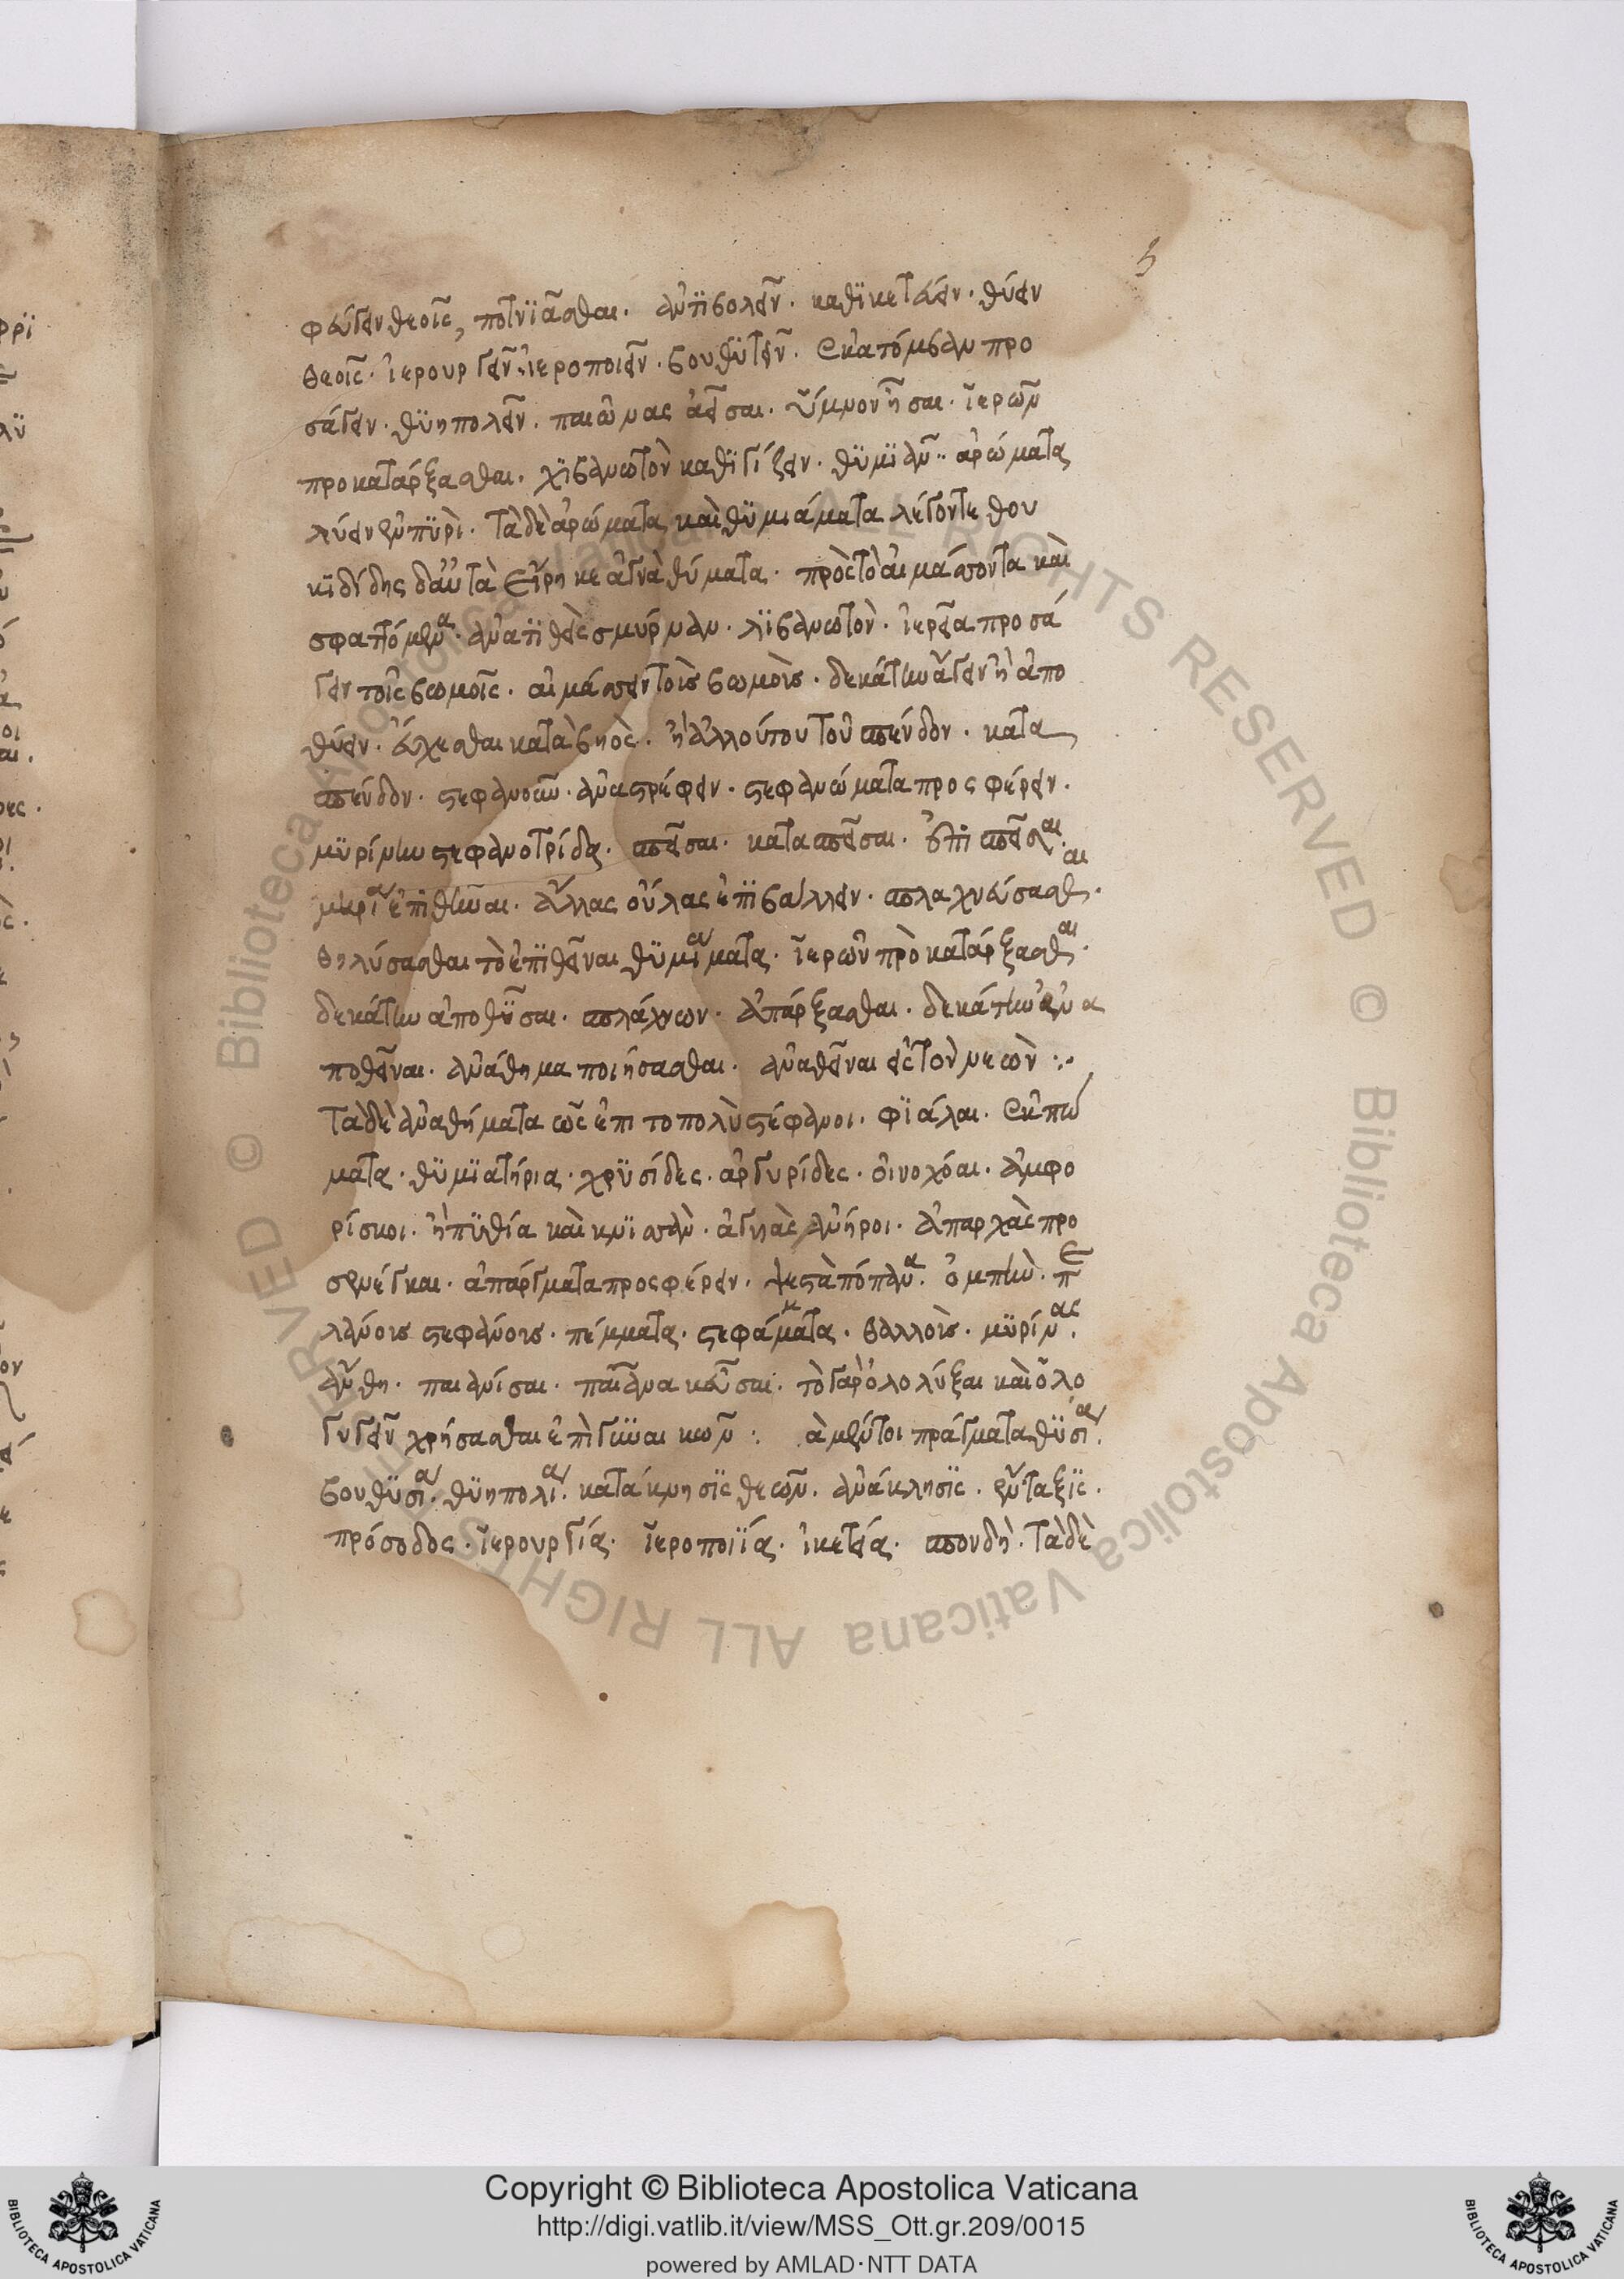 5
φαύγειν θεοῖς, ποτνιᾶσθαι. ἀντιβολεῖν. καθικετεύειν. θύειν
θεοῖς. ἱερουργεῖν. ἱεροποιεῖν. βουθυτεῖν. ἑκατόμβην προ
σάγειν. θυηπολεῖν. παιῶνας ἀεῖσαι. ὕμνον ᾖσαι. ἱερῶν
προκατάρξασθαι. λιβανωτὸν καθαγίζειν. θυμιᾶν. ἀρώματα
λύειν ἐν πυρὶ. τὰ δὲ ἀρώματα καὶ θυμιάματα λέγονται θου
κιδίδης δ' αὐτὰ εἴρηκε ἁγνὰ θύματα. πρὸς τὸ αἱμάσσοντα καὶ
σφαττόμενα. ἀνατιθεὶς σμύρναν. λιβανωτὸν. ἱερεῖα προσά
γειν τοῖς βωμοῖς. αἱμάσσειν τοὺς βωμοὺς. δεκάτην ἄγειν ἢ ἀπο
θύειν. εὔχεσθαι κατὰ βοὸς. ἢ ἄλλου του τοῦ σπένδον. κατα
σπένδον. στεφανοῦν. ἀναστρέφειν. στεφανώματα προσφέρειν.
μυρίνην στεφανοτρίδα. σπεῖσαι. κατασπεῖσαι. ἐπισπεῖσαι.
μηρία ἐπιθῦναι. ἄλλας οὐλὰς ἐπιβάλλειν. σπλαγχνεύσασθαι.
θηλύσασθαι τὸ ἐπιθεῖναι θυμιάματα. ἱερῶν προκατάρξασθαι.
δεκάτην ἀποθῦσαι. σπλάχνων. ἀπάρξασθαι. δεκάτην ἀνα
ποθεῖναι. ἀνάθημα ποιήσασθαι. ἀναθεῖναι εἰς τὸν νεὼν :·
τὰ δὲ ἀναθήματα ὡς ἐπι το πολὺ στέφανοι. φιάλαι. ἐκπώ
ματα. θυμιατήρια. χρυσίδες. ἀργυρίδες. οἰνοχόαι. ἀμφο
ρίσκοι. ἡ πυθία καὶ κνισσᾶν. ἀγυιὰς ἀνῆροι. ἀπαρχὰς προ
σενέγκαι. ἀπάργματα προσφέρειν. λεστὰ πόπανα. ὀμπὴν. πε
λάνοις στεφάνοις. πέμματα. στεφάμματα. θαλλοὺς. μυρίνας.
ἄνθη. παιανίσαι. παιᾶνα καῦσαι. τὸ γὰρ ὀλολύξαι καὶ ὀλο
γυγεῖν χρήσασθαι ἐπὶ γυναικῶν : ἃ μέντοι πράγματα θυσία.
βουθυσία. θυηπολία. κατάκνησις θεῶν. ἀνάκλησις. ἔνταξις.
πρόσοδος. ἱερουργία. ἱεροποιία. ἱκετεία. σπονδὴ. τὰ δὲ
Copyright © Biblioteca Apostolica Vaticana
http://digi.vatlib.it/view/MSS_Ott.gr.209/0015
powered by AMLAD·NTT DATA